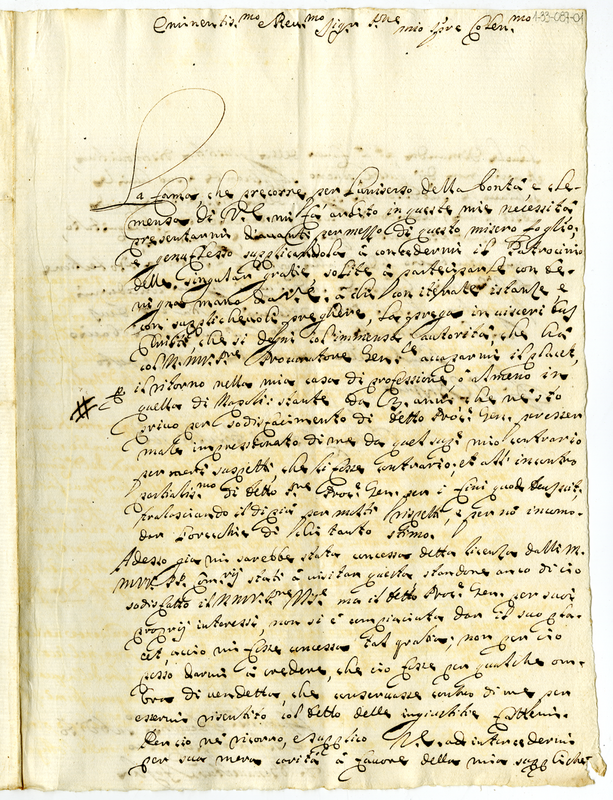 1-33-087-01
Eminentis.mo e Reu.mo Sig.r P.ne mio Sig.re Colen.mo
La fama, che precorre per l'uniuerso della bontà, e cle-
menza, di V.E. mi fà ardito in queste mie necessità
presentarmi dinanti per mezzo di questo misero foglio,
e genuflesso supplicandola à concedermi il Patrocinio
delle singulari gratie solite à participarsi con be-
nigna mano da V.E. à chi con iterate istanze, e
con supplicheuoli preghiere, la prega in uisceribus
che si degni coll'immensa autorità, che hà
col Procuratore Gen.le accaparmi il placet,
il ritorno nella mia casa di professione, ò almeno in
quella di Napoli: stante da anni, che ne stò
priuo per sodisfacimento di detto Pro.r Gen. per esser
male impressionato di me da quel suo mio contrario
per uarij suspetti, che li fosse contrario, et all'incontro
partialis.mo di detto Pro.r Gen. per i fini
tralasciando il di più per molti rispetti e per no incomo-
dar l'orecchie di tanto stimo.
Adesso già mi sarebbe stata concessa detta licenza dalli M.
stati à uisitar questa standone anco di ciò
sodisfatto il ma il detto Pro.r Gen. per suoi
proprij interessi, non si è compiaciuta dar il suo pla-
cet, acciò mi fosse concessa tal gratia; non per ciò
posso darmi à credere, che ciò fosse per qualche om-
bra di uendetta, che conseruasse contro di me per
essermi risentito col detto delle ingiustitie
Perciò ne ricorro, e supplico V.E. ad intercedermi
per sua mera carità à fauore della mia suppliche